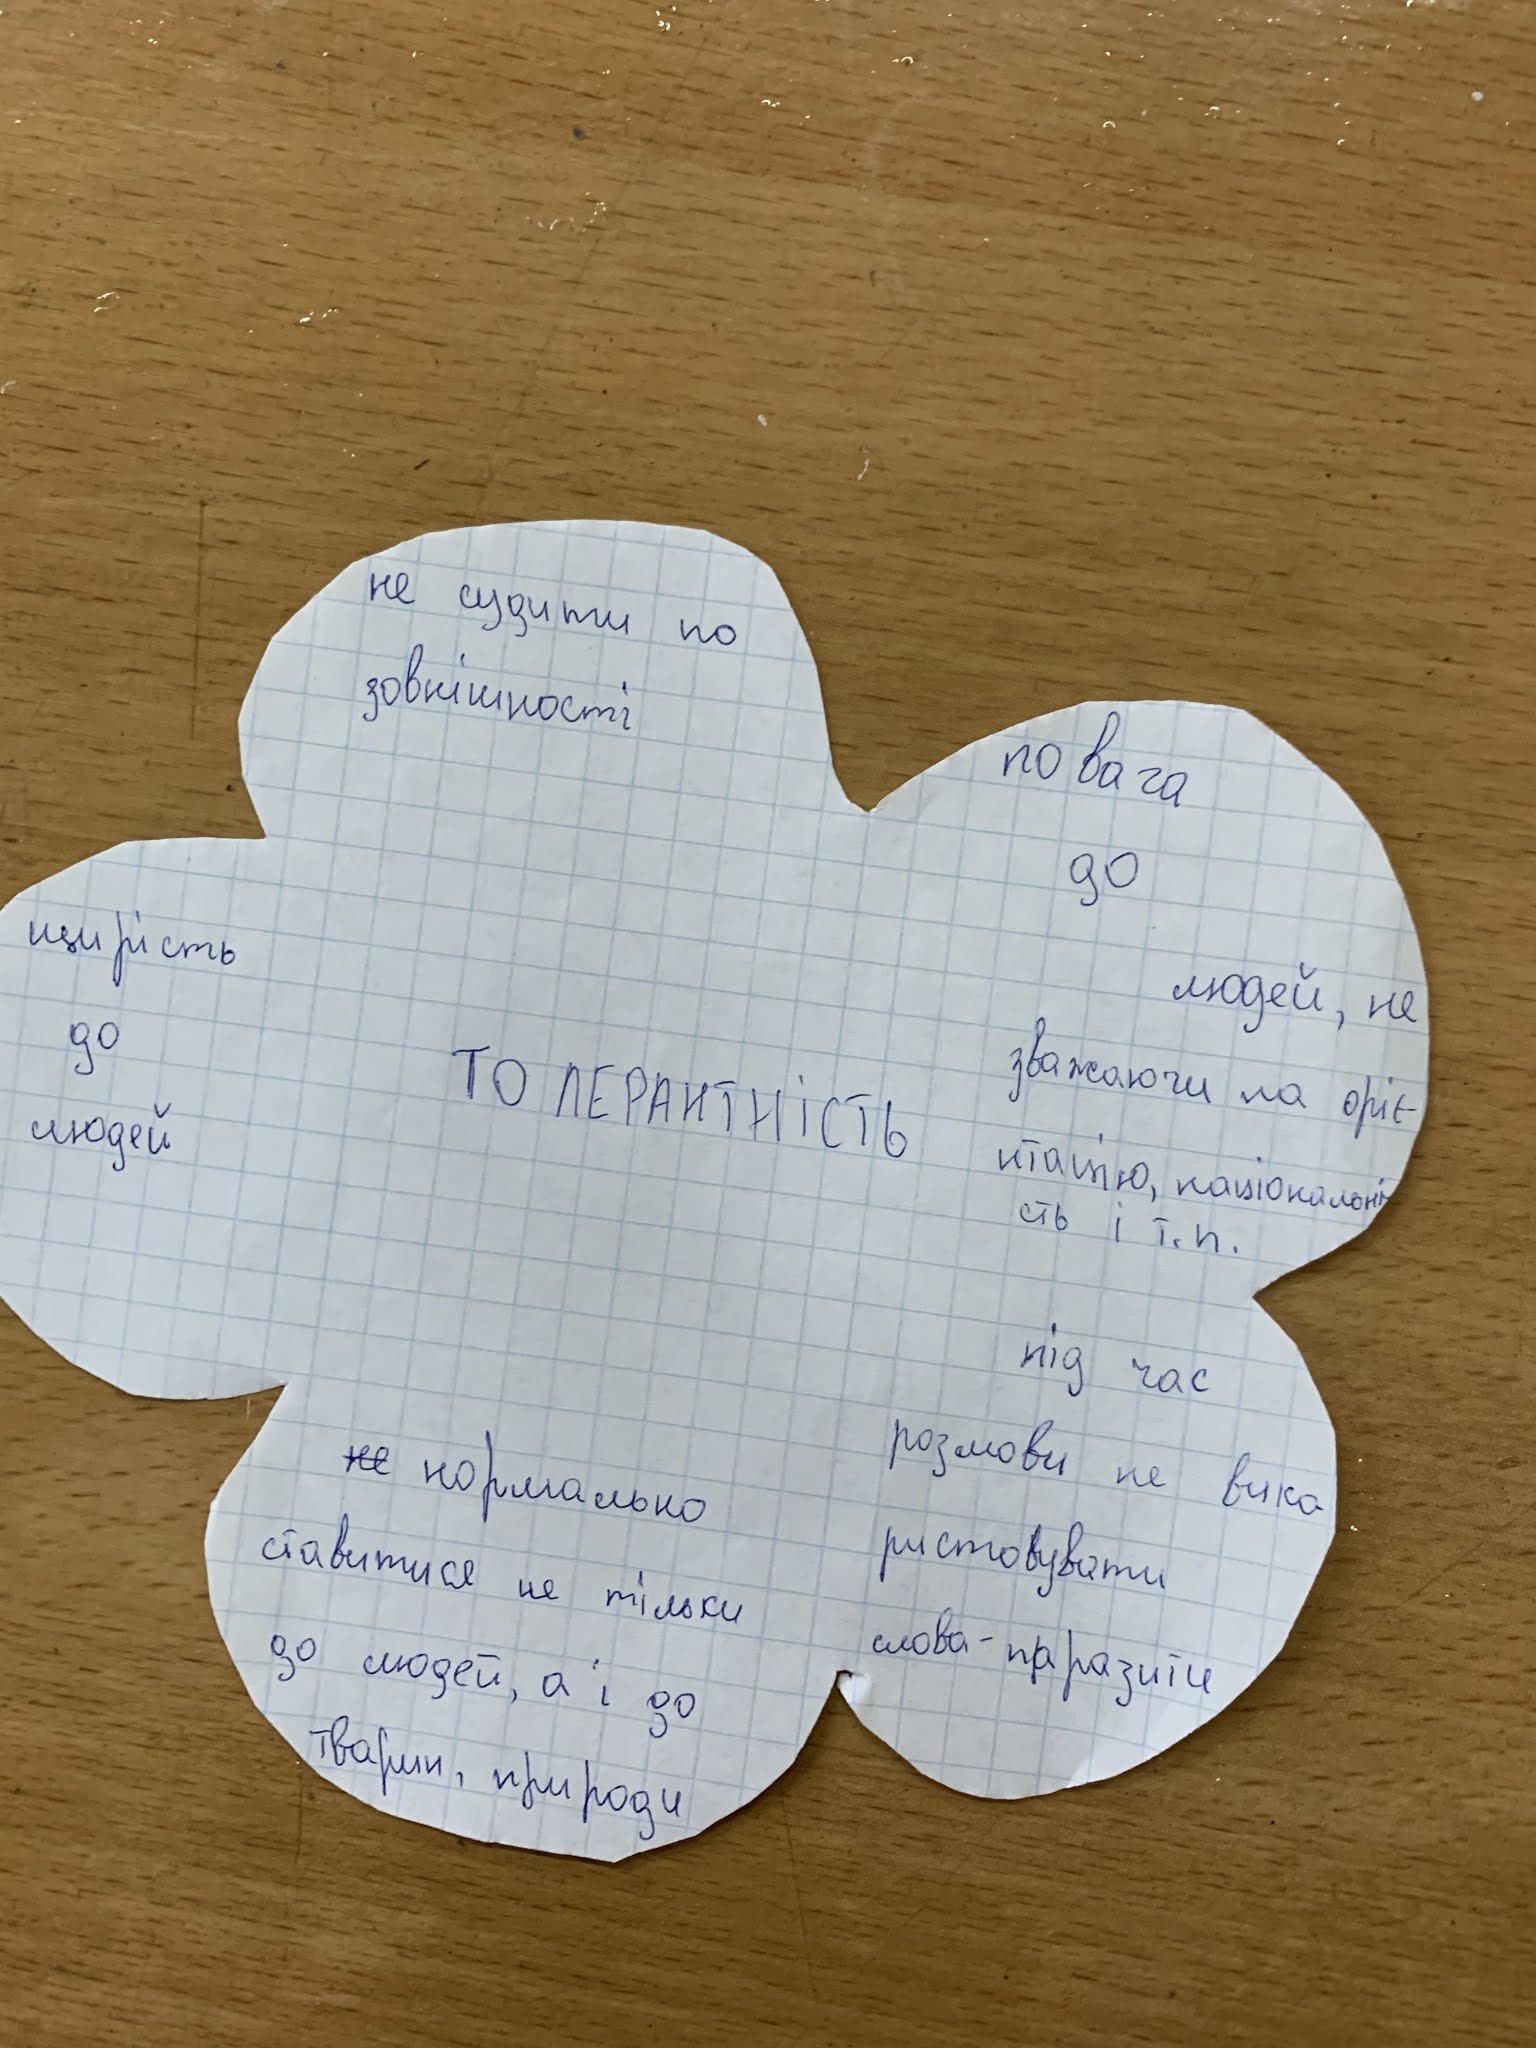 не судити по
зовнішності
повага
до
людей, не
зважаючи на оріє-
нтацію, національні
сть і т.п.
щирість
до
людей
ТОЛЕРАНТНІСТЬ
під час
розмови не вико
ристовувати
слова-паразити
не нормально
ставитися не тільки
до людей, а і до
тварин, природи